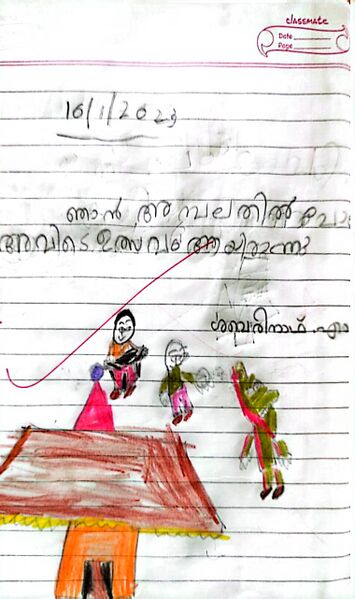 classmate
Date
Page
16/1/2023
ഞാൻ അമ്പലതിൽ പോ
അവിടെ ഉത്സവം ആയിരുന്നു
ശബരിനാഥ്. എം